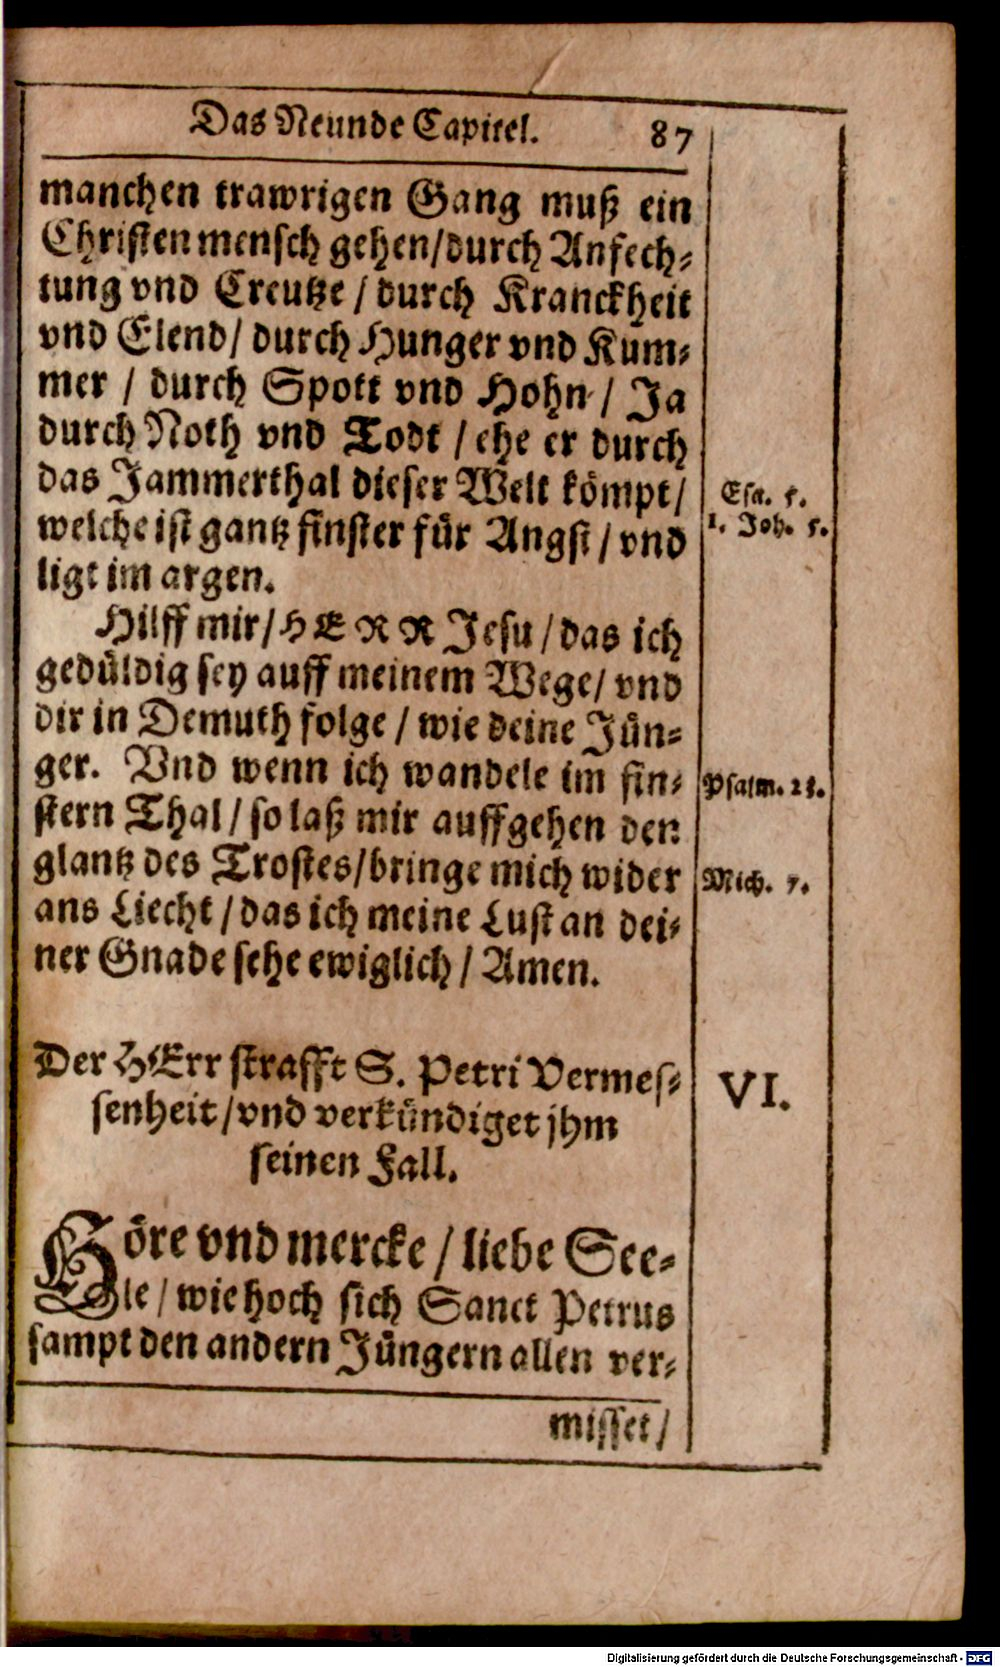 Das Neunde Capitel. 87
manchen trawrigen Gang muß ein
Christenmensch gehen/durch Anfech-
tung vnd Creutze / durch Kranckheit
vnd Elend/ durch Hunger vnd Kum-
mer / durch Spott vnd Hohn / Ja
durch Noth vnd Todt / ehe er durch
das Jammerthal dieser Welt kömpt/
Esa. 5.
welche ist gantz finster für Angst / vnd
1. Joh. 5.
ligt im argen.
Hilff mir/HERR Jesu/das ich
gedüldig sey auff meinem Wege/ vnd
dir in Demuth folge / wie deine Jün-
ger. Vnd wenn ich wandele im fin-
Psalm. 23.
stern Thal/ so laß mir auffgehen den
glantz des Trostes/bringe mich wider
Mich. 7.
ans Liecht/das ich meine Lust an dei-
ner Gnade sehe ewiglich/ Amen.
Der HErr strafft S. Petri Vermes-
VI.
senheit/vnd verkündiget jhm
seinen Fall.
Höre vnd mercke / liebe See-
le / wie hoch sich Sanct Petrus
sampt den andern Jüngern allen ver-
misset/
Digitalisierung gefördert durch die Deutsche Forschungsgemeinschaft - DFG